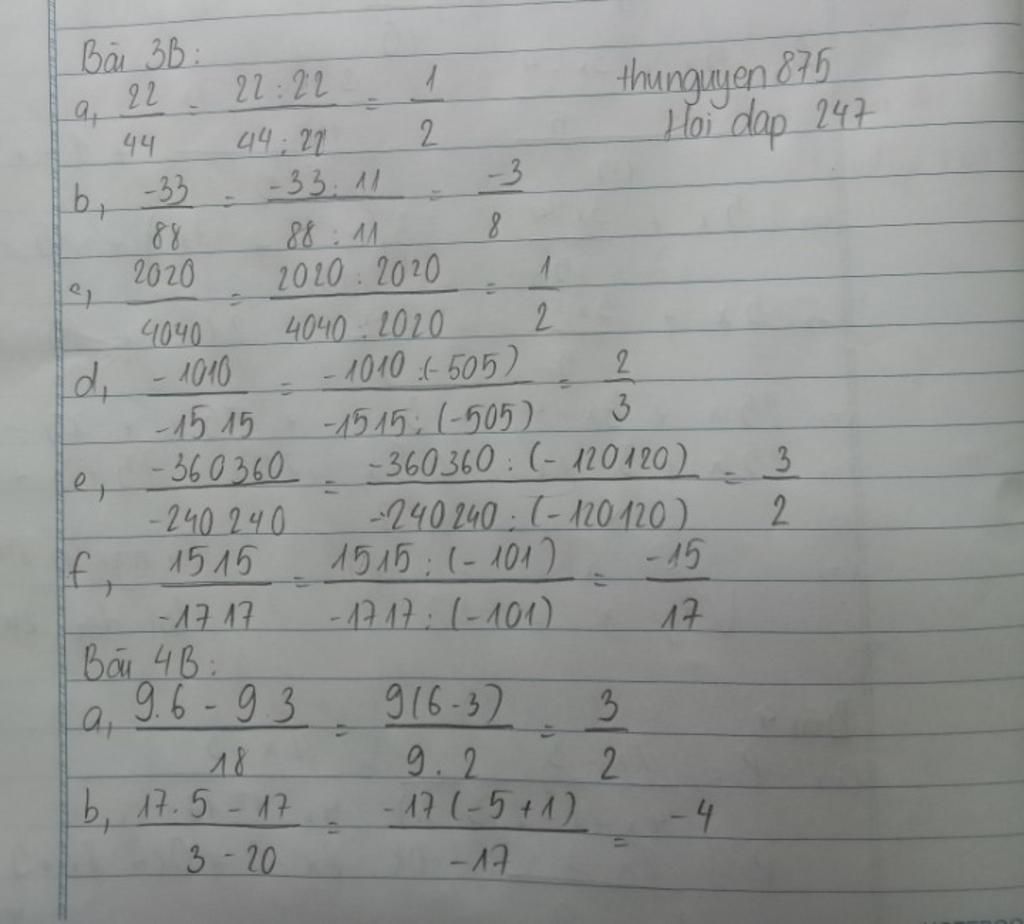 Bài 3B:
thunguyen 875
Hoi dap 247
a, 22/44 = 22:22/44:22 = 1/2
b, -33/88 = -33:11/88:11 = -3/8
c, 2020/4040 = 2020:2020/4040:2020 = 1/2
d, -1010/-1515 = -1010:(-505)/-1515:(-505) = 2/3
e, -360360/-240240 = -360360:(-120120)/-240240:(-120120) = 3/2
f, 1515/-1717 = 1515:(-101)/-1717:(-101) = -15/17
Bài 4B:
a, 9.6-9.3/18 = 9(6-3)/9.2 = 3/2
b, 17.5-17/3-20 = -17(-5+1)/-17 = -4